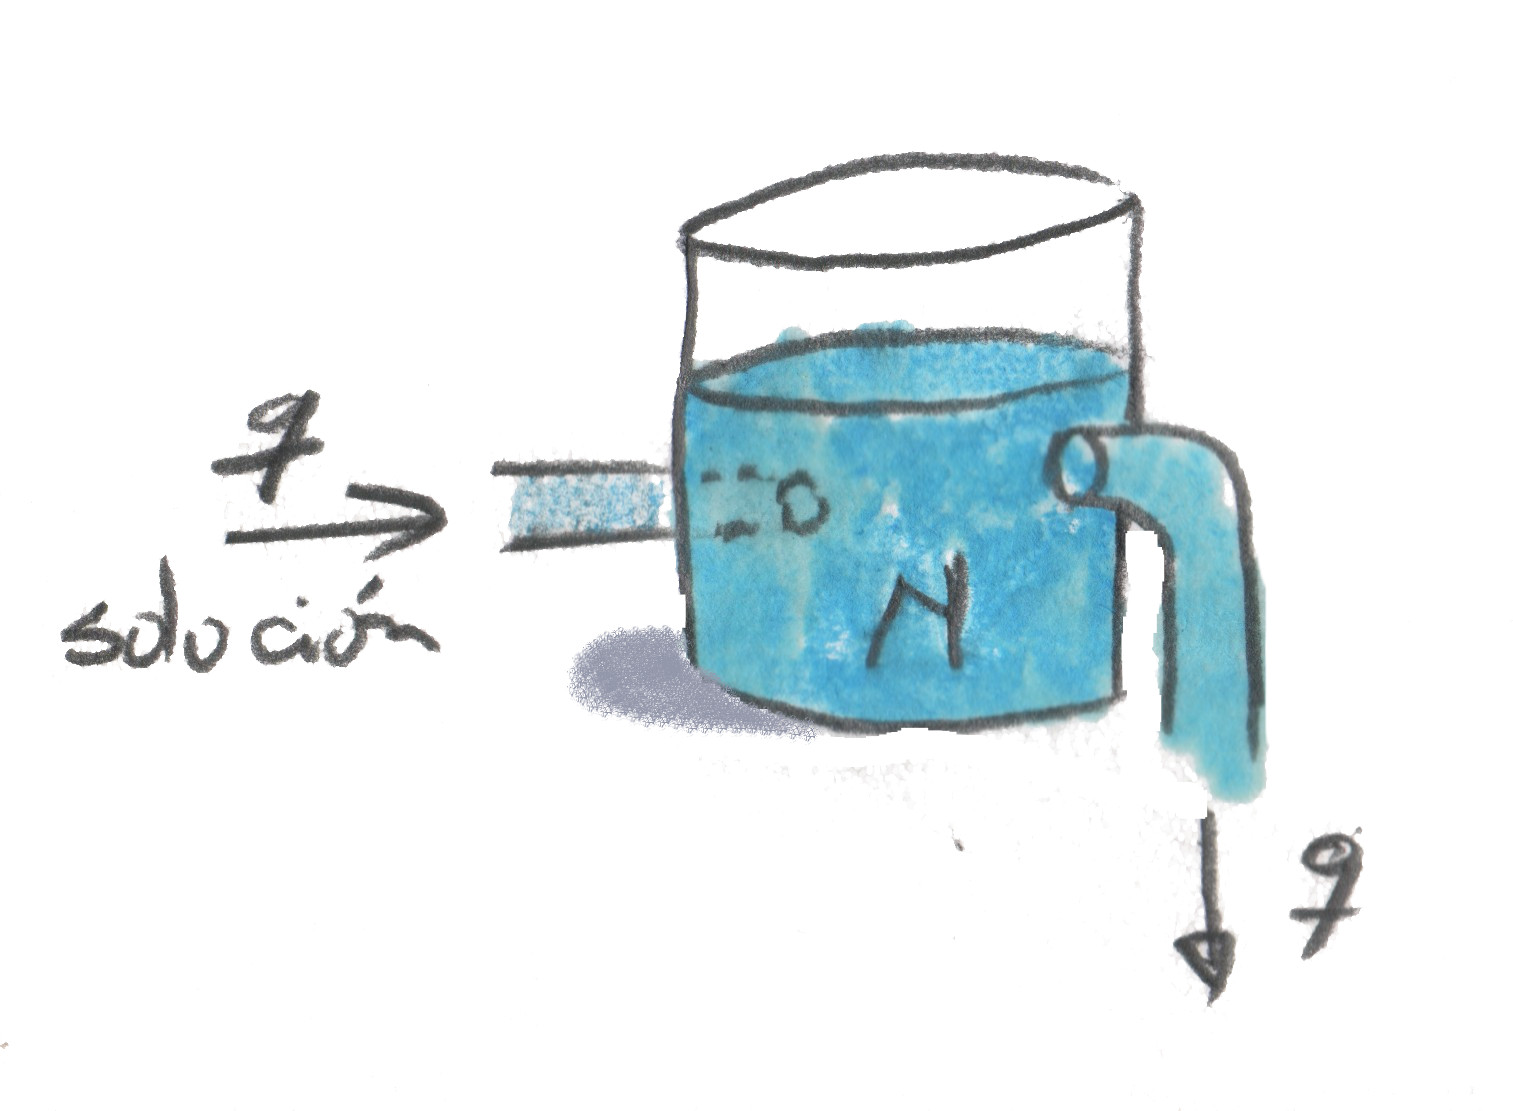 q
solución
N
q